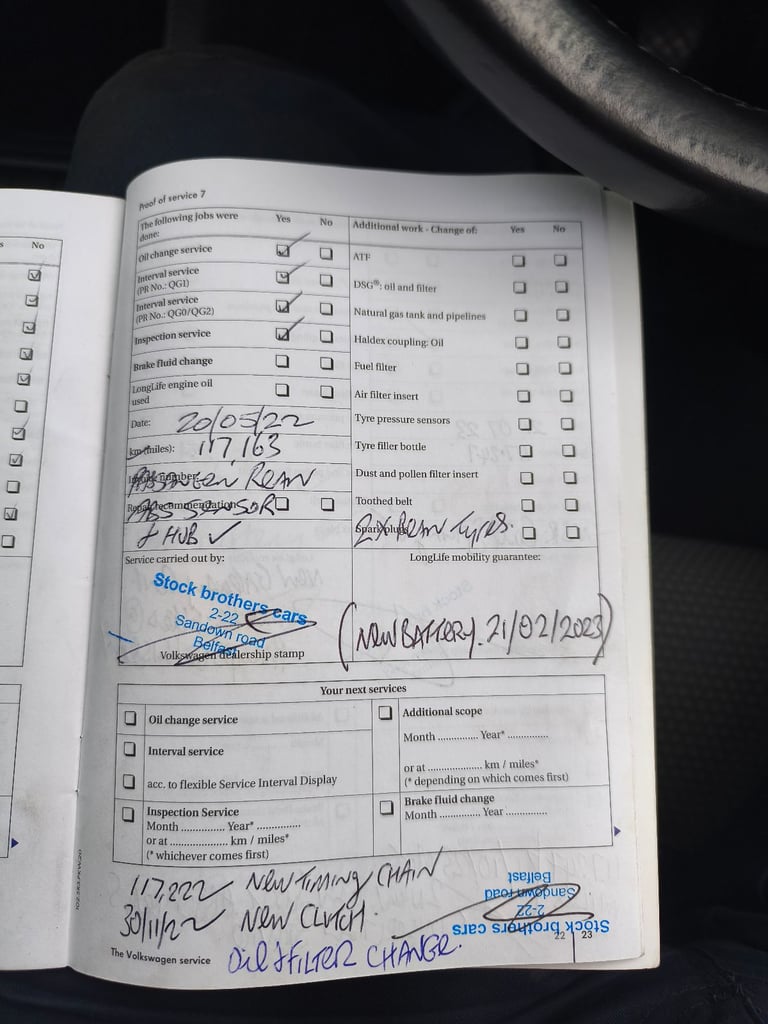 No
Proof of service 7
The following jobs were done: Yes No
Oil change service
Interval service
(PR No.: QG1)
Interval service
(PR No.: QG0/QG2)
Inspection service
Brake fluid change
LongLife engine oil
used
Date: 20/05/22
km (miles): 117,163
REAR
Repair recommendation
ABS SENSOR
& HUB ✓
Additional work - Change of: Yes No
ATF
DSG®: oil and filter
Natural gas tank and pipelines
Haldex coupling: Oil
Fuel filter
Air filter insert
Tyre pressure sensors
Tyre filler bottle
Dust and pollen filter insert
Toothed belt
Spark plugs
2X REAR TYRES.
Service carried out by:
Stock brothers cars
2-22
Sandown road
Belfast
Volkswagen dealership stamp
LongLife mobility guarantee:
(NEW BATTERY. 21/02/2023)
Your next services
Oil change service
Interval service
acc. to flexible Service Interval Display
Inspection Service
Month .............. Year* ..............
or at .................... km / miles*
(* whichever comes first)
Additional scope
Month .............. Year* ..............
or at .................... km / miles*
(* depending on which comes first)
Brake fluid change
Month .............. Year ...............
117,222 NEW TIMING CHAIN
30/11/22 NEW CLUTCH.
OIL & FILTER CHANGE.
Stock brothers cars
2-22
Sandown road
Belfast
The Volkswagen service
22 23